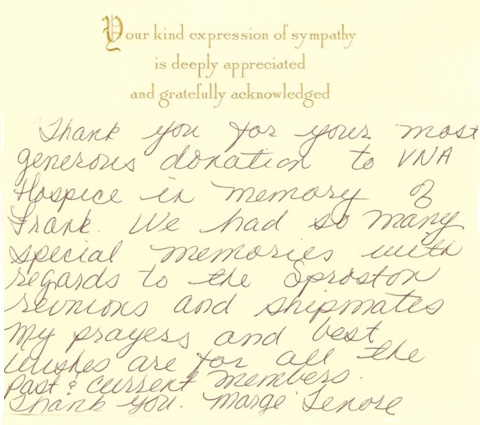 Your kind expression of sympathy
is deeply appreciated
and gratefully acknowledged
Thank you for your most
generous donation to VNA
Hospice in memory of
Frank. We had so many
special memories with
regards to the Sproston
reunions and shipmates
My prayers and best
wishes are for all the
past & current members.
Thank you. Marge Lenore